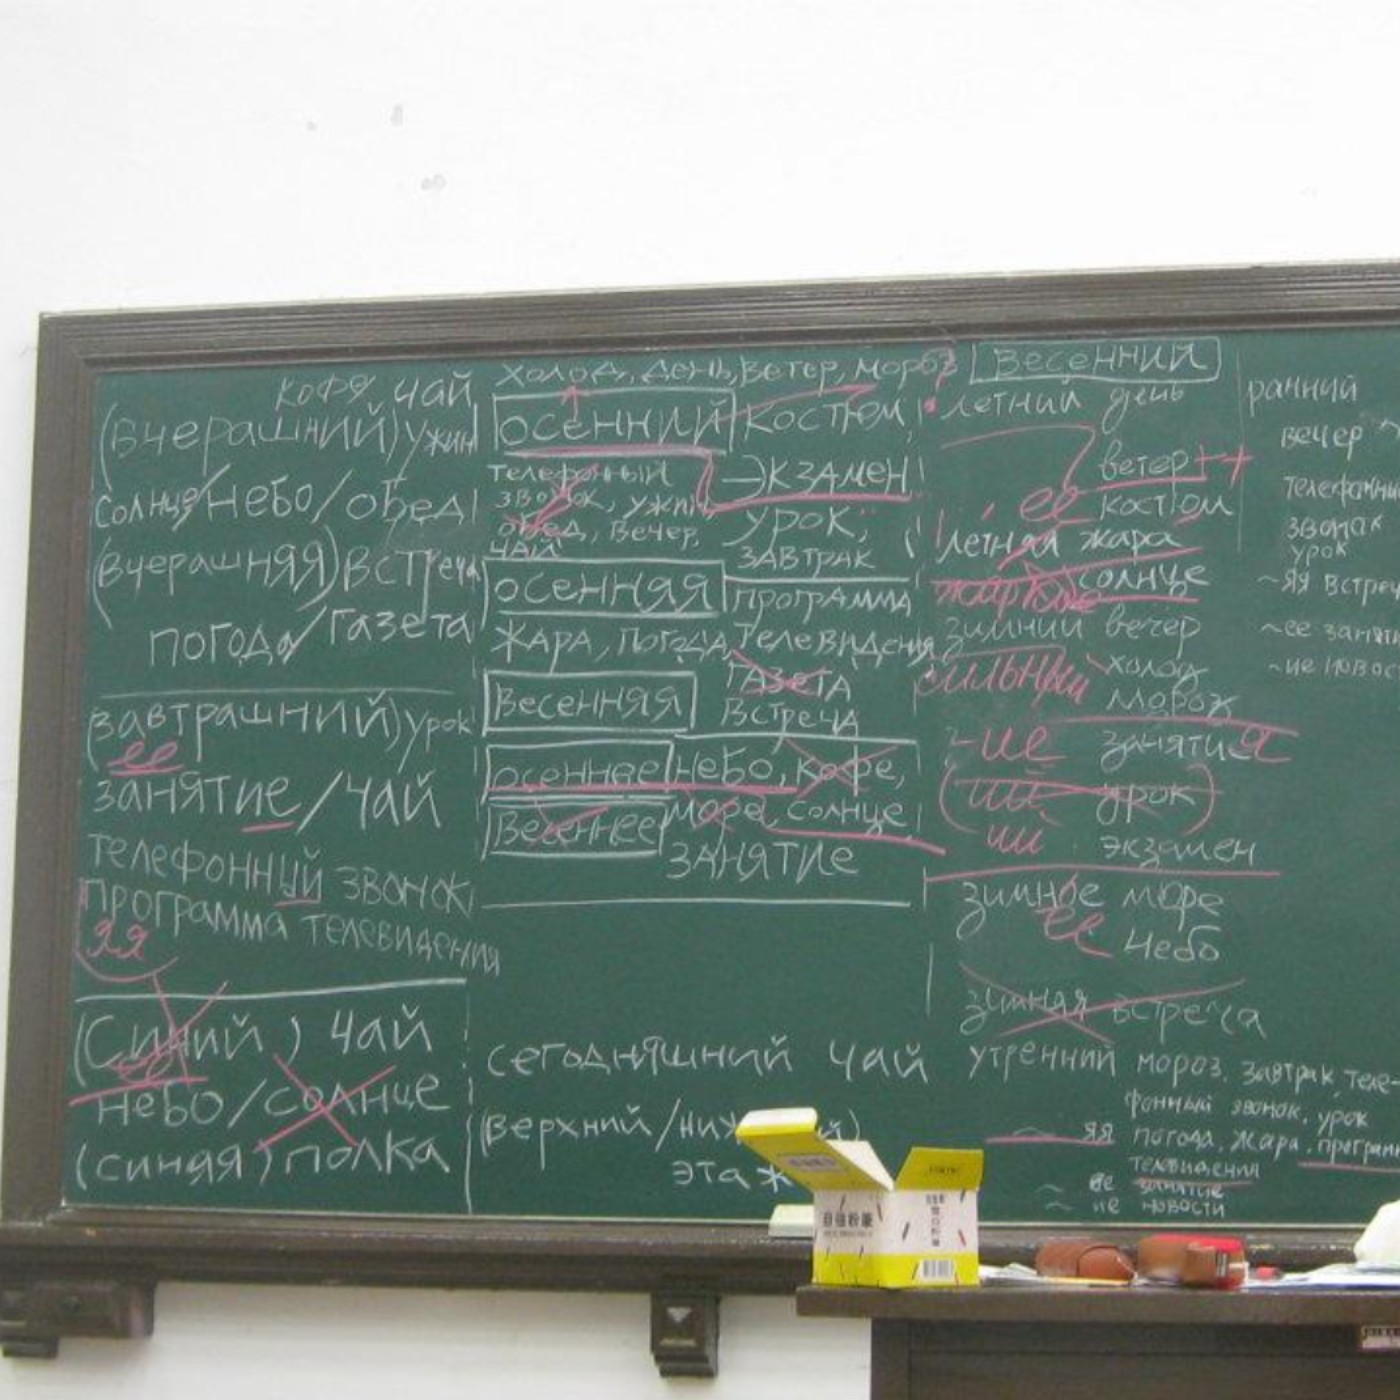 кофе, чай
(вчерашний) ужин
солнце/небо/обед
(вчерашняя) встреча
погода/газета
(завтрашний) урок
ее
занятие/чай
телефонный звонок
программа телевидения
яя
(Синий) чай
небо/солнце
(синяя) полка
холод, день, ветер, мороз
осенний костюм,
телефонный
звонок, ужин,
обед, вечер,
чай
экзамен
урок,
завтрак
осенняя программа
жара, погода, телевидения
газета
весенняя встреча
осеннее небо, кофе,
весеннее море, солнце,
занятие
сегодняшний чай
(верхний/
этаж
весенний
летний день
ветер ++
ее костюм
летняя жара
солнце
зимний вечер
сильный холод
мороз
-ие занятия
(ий урок)
ий экзамен
зимное море
ее небо
зимняя встреча
утренний мороз, завтрак, теле-
фонный звонок, урок
яя погода, жара, програм
телевидения
ее занятие
ие новости
ранний
вечер
телефонны
звонок
урок
~яя встре
~ее заня
~ие ново
自强粉廠